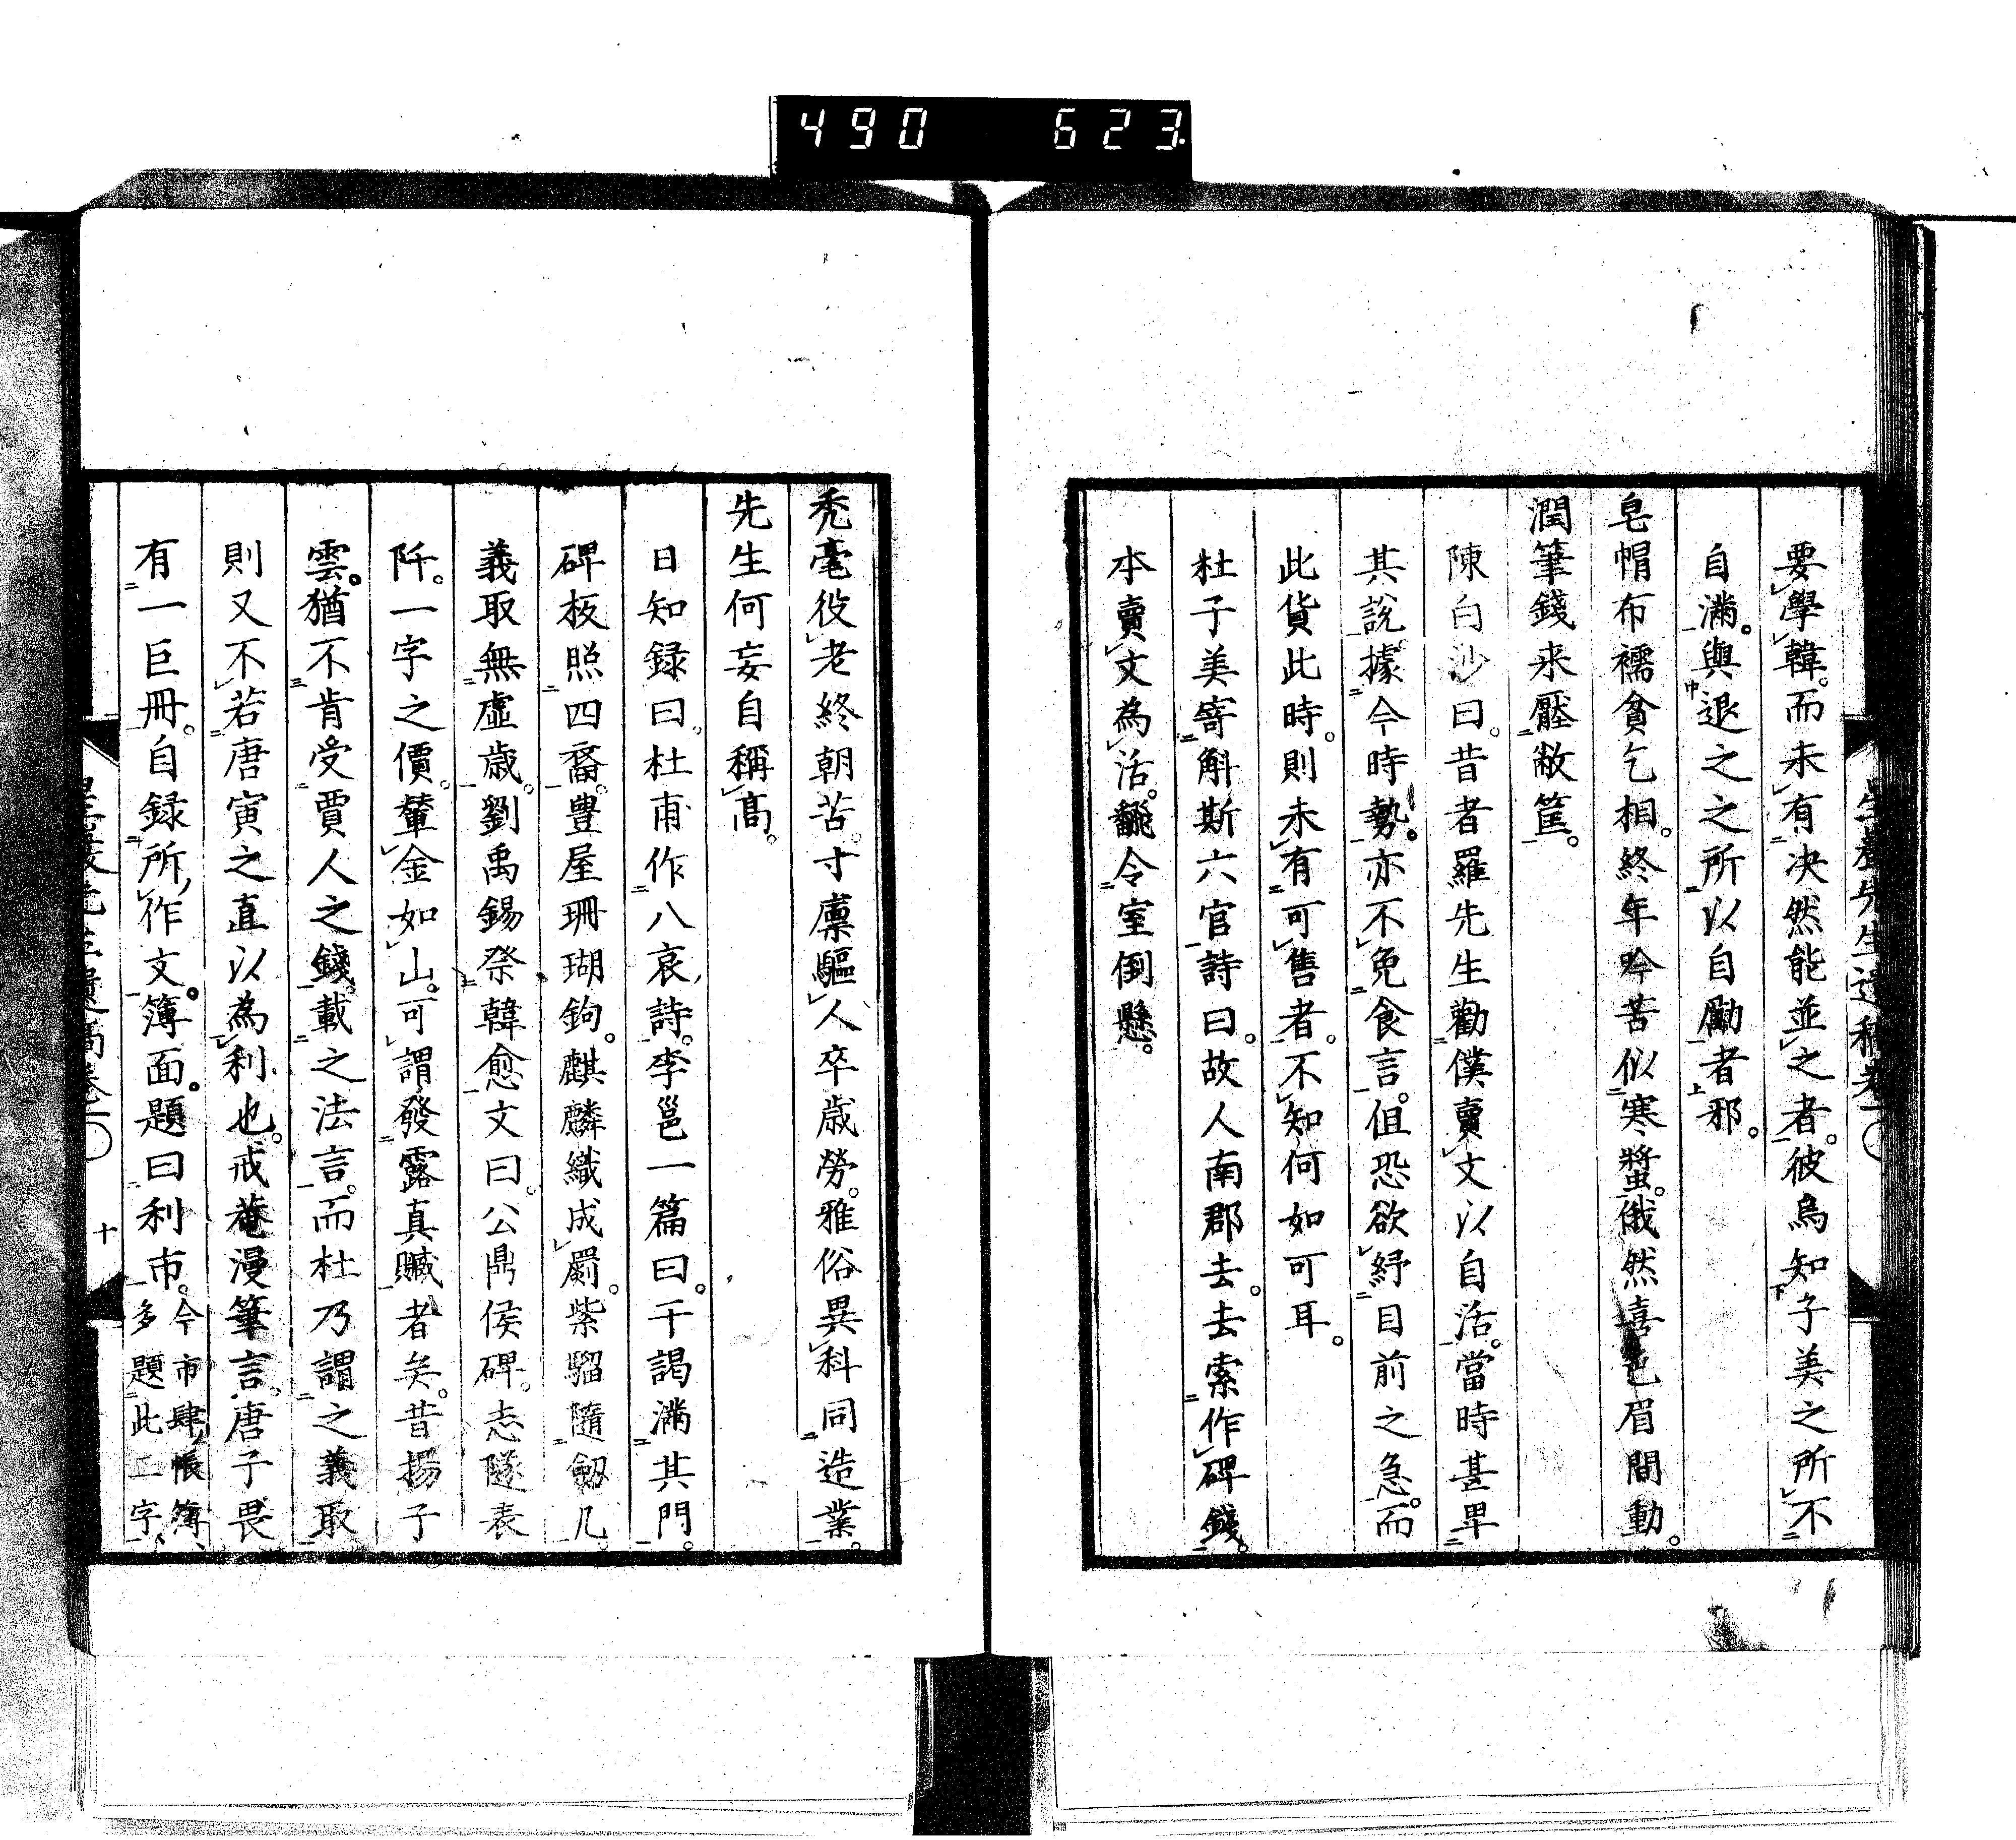 490 623
要學韓。而未有决然能並之者。彼烏知子美之所不
自滿。與退之之所以自勵者邪。
皂帽布襦貧乞相。終年吟苦似寒螿。俄然喜色眉間動。
潤筆錢来壓敝筐。
陳白沙曰。昔者羅先生勸僕賣文以自活。當時甚卑
其說。據今時勢。亦不免食言。但恐欲紓目前之急。而
此貨此時。則未有可售者。不知何如可耳。
杜子美寄斛斯六官詩曰。故人南郡去。去索作碑錢。
本賣文為活。飜令室倒懸。
禿毫役老終朝苦。寸廩驅人卒歳勞。雅俗異科同造業。
先生何妄自稱高。
日知録曰。杜甫作八哀詩。李邕一篇曰。干謁滿其門。
碑板照四裔。豊屋珊瑚鉤。麒麟織成罽。紫騮隨劔几。
義取無虛歳。劉禹錫祭韓愈文曰。公鼎侯碑。志隧表
阡。一字之價。輦金如山。可謂發露真贓者矣。昔揚子
雲。猶不肯受賈人之錢。載之法言。而杜乃謂之義取
則又不若唐寅之直以為利也。戒菴漫筆言。唐子畏
有一巨冊。自録所作文。簿面題曰利市。今市肆帳簿、
多題此二字、
十